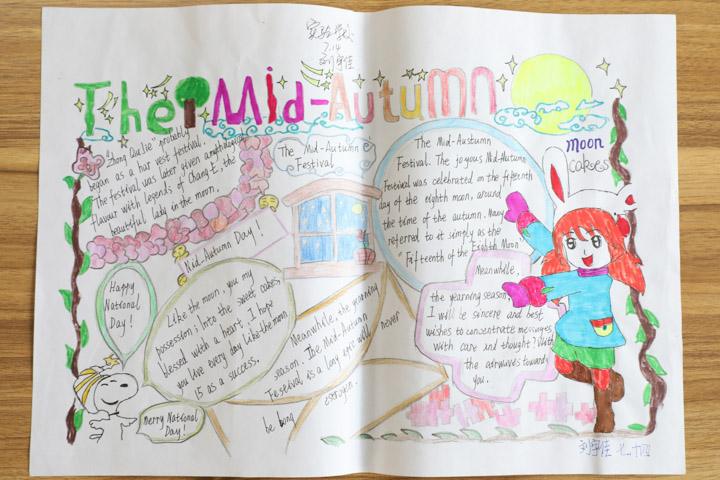 实验学校
7.14
刘宇佳
The Mid-Autumn
"Zhong Qiu Jie" probably
began as a harvest festival.
The festival was later given a mythological
flavour with legends of Chang-E, the
beautiful lady in the moon.
The Mid-Autumn
Festival
The Mid-Austumn
Festival. The joyous Mid-Autumn
Festival was celebrated on the fifteenth
day of the eighth moon, around
the time of the autumn. Many
referred to it simply as the
"Fifteenth of the Eighth Moon"
moon
cakses
Mid-Autumn Day!
Happy
National
Day!
Like the moon, you my
possession; Into the sweet cakes,
blessed with a heart, I hope
you live every day like the moon
15 as a success.
Meanwhile, the yearning
season. The Mid-Autumn
Festival is a long epic will
never
be being
Meanwhile,
the yearning season,
I will be sincere and best
wishes to concentrate messages
with care and thought? With
the airwaves towards
you.
merry National
Day!
刘宇佳 七、十四